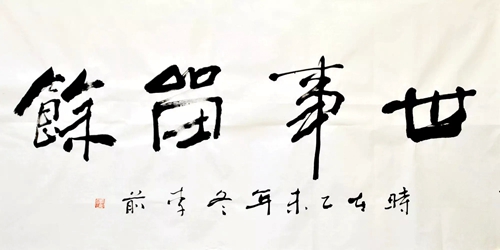 世事留餘
時在乙未年冬李前